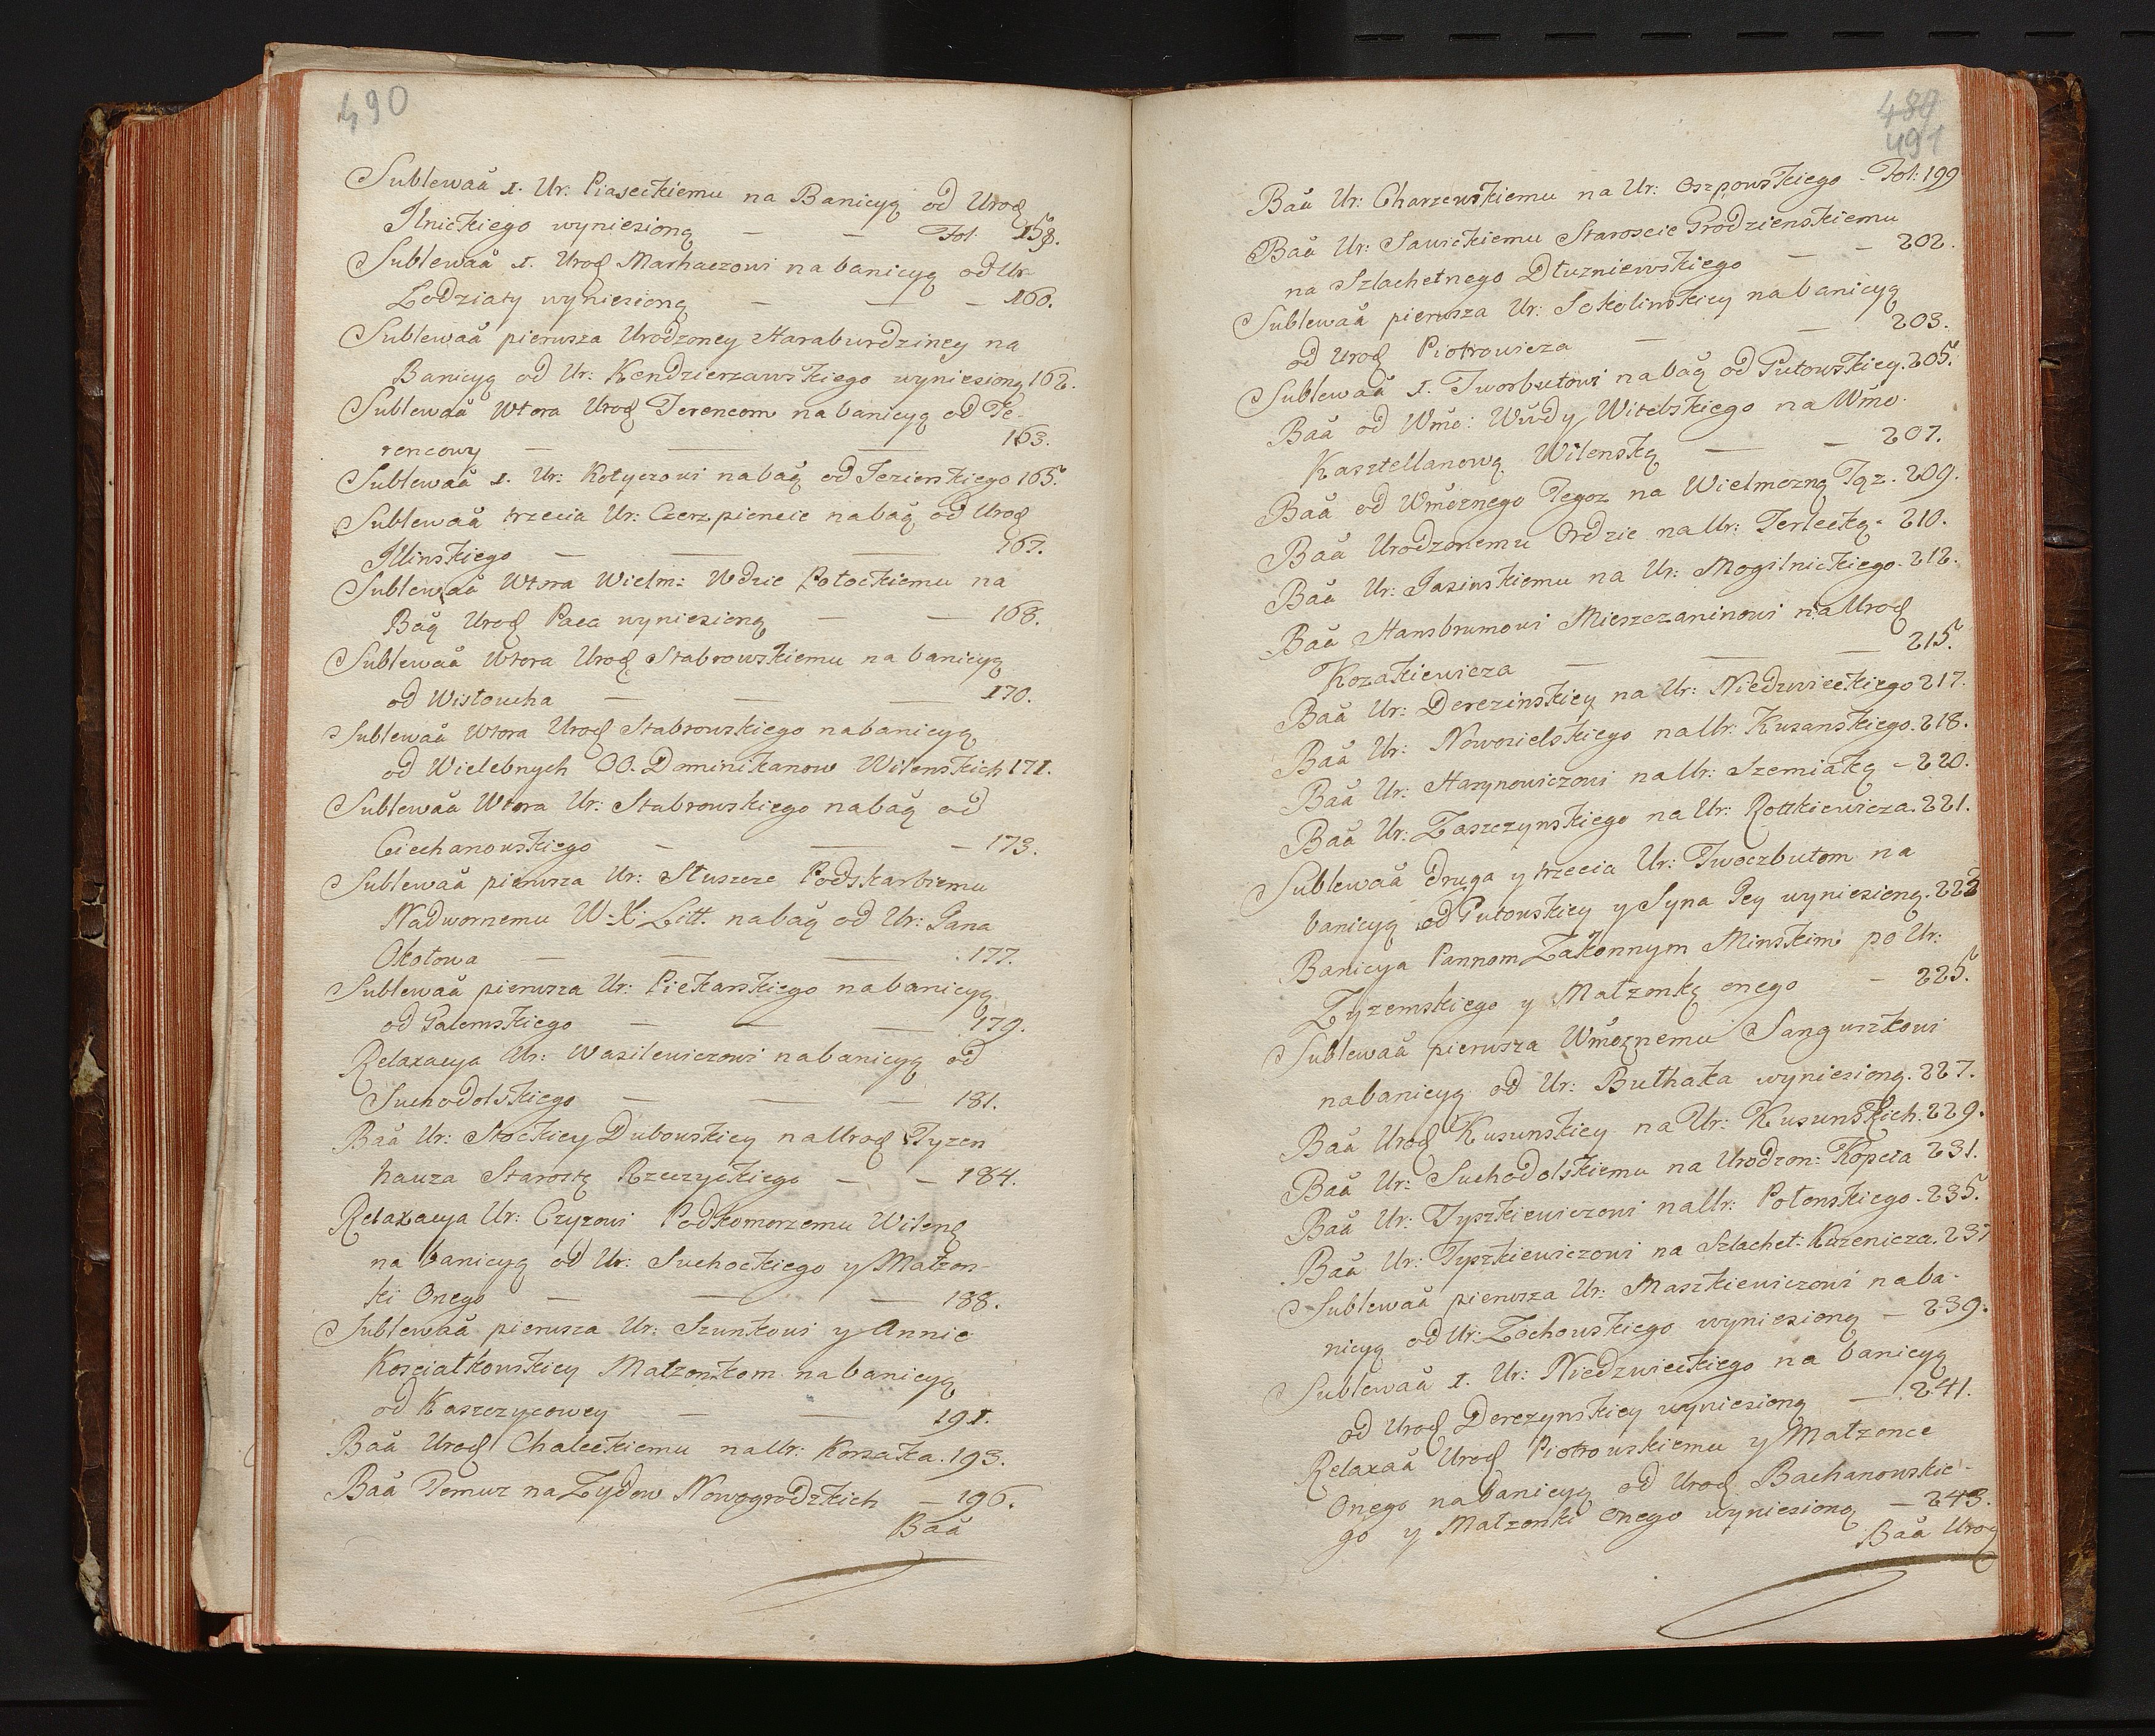 490
Sublewaã 1. Ur: Piaseckiemu na Banicyą od Urod
Ilnickiego wyniesioną — — Fol. 158.
Sublewaã 1. Urod Marhaczowi na banicyą od Ur
Łodziaty wyniesioną — — — 160.
Sublewaã pierwsza Urodzoney Haraburdziney na
Banicyą od Ur: Kendzierzawskiego wyniesioną 162.
Sublewaã Wtora Urod Terencom na banicyą od Te-
rencowy — — — 163.
Sublewaã 1. Ur: Kotyczowi na baą od Jezierskiego 165.
Sublewaã trzecia Ur: Czerzpiencie na baą od Urod
Illinskiego — — — 167.
Sublewaã Wtora Wielm: Wdzie Potockiemu na
Baą Urod Paca wyniesioną — — 168.
Sublewaã Wtora Urod Stabrowskiemu na banicyą
od Wistoucha — — — 170.
Sublewaã Wtora Urod Stabrowskiego na banicyą
od Wielebnych OO. Dominikanow Wilenskich 171.
Sublewaã Wtora Ur: Stabrowskiego na baą od
Ciechanowskiego — — — 173.
Sublewaã pierwsza Ur: Słuszcze Podskarbiemu
Nadwornemu W. X. Litt. na baą od Ur: Pana
Okołowa — — — 177.
Sublewaã pierwsza Ur: Piekarskiego na banicyą
od Galemskiego — — — 179.
Relaxacya Ur: Wasilewiczowi na banicyą od
Suchodolskiego — — — 181.
Baã Ur: Stockiey Dubowskiey na Urod Tyzen
hauza Starostę Rzeczyckiego — — 184.
Relaxacya Ur: Czyzowi Podkomorzemu Wilens
na banicyą od Ur: Suchockiego y Małzon-
ki Onego — — — 188.
Sublewaã pierwsza Ur: Szunkowi y Annie
Kosciałkowskiey Małzonkom na banicyą
od Kaszczycowey — — 191.
Baã Urod Chaleckiemu na Ur: Korsaka. 193.
Baã Temuz na Zydow Nowogrodzkich — 196.
Baã
489
491
Baã Ur: Charzewskiemu na Ur: Oszpowskiego Fol: 199
Baã Ur: Sawickiemu Staroscie Grodzienskiemu
na Szlachetnego Dłuzniewskiego — — 202.
Sublewaã pierwsza Ur: Sokolinskiey na banicyą
od Urod Piotrowicza — — 203.
Sublewaã 1. Tworbutowi na baą od Gutowskiey. 205.
Baã od Wmo: Wudy Witebskiego na Wmo.
Kasztellanową Wilenską — — 207.
Baã od Wmoznego Tegoz na Wielmozną Tąz. 209.
Baã Urodzonemu Ordzie na Ur: Terlecką. 210.
Baã Ur: Jasinskiemu na Ur: Mogilnickiego. 212.
Baã Hansbrumowi Mieszczaninowi na Urod
Kozakiewicza — — — 215.
Baã Ur: Derezinskiey na Ur: Niedzwieckiego 217.
Baã Ur: Nowosielskiego na Ur: Kusanskiego. 218.
Baã Ur: Harynowiczowi na Ur: Szemiakę — 220.
Baã Ur: Zaszczynskiego na Ur: Rottkiewicza. 221.
Sublewaã druga y trzecia Ur: Tworzbutom na
banicyą od Gutowskiey y Syna Jey wyniesioną. 222
Banicya Pannom Zakonnym Minskim po Ur:
Zyzemskiego y Małzonkę onego — 225.
Sublewaã pierwsza Wmoznemu Sanguszkowi
na banicyą od Ur: Buthaka wyniesioną. 227.
Baã Urod Kusunskiey na Ur: Kusunskich. 229.
Baã Ur: Suchodolskiemu na Urodzon: Kopcia 231.
Baã Ur: Tyszkiewiczowi na Ur: Połonskiego. 235.
Baã Ur: Tyszkiewiczowi na Szlachet: Kuzenicza. 237
Sublewaã pierwsza Ur: Maszkiewiczowi na ba-
nicyą od Ur: Zochowskiego wyniesioną — 239.
Sublewaã 1. Ur: Niedzwieckiego na banicyą
od Urod Derezynskiey wyniesioną — 241.
Relaxaã Urod Piotrowskiemu y Małzonce
Onego na banicyą od Urod Bachanowskie-
go y Małzonki onego wyniesioną — 243.
Baã Urod